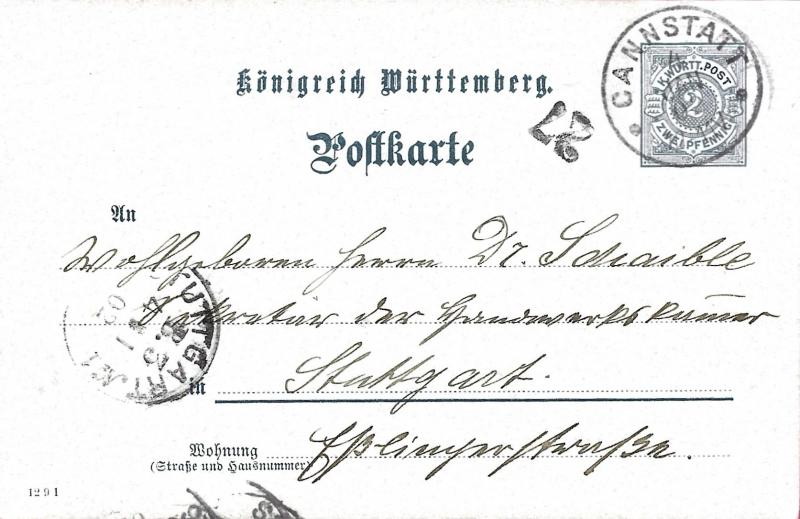 CANNSTATT
K. WÜRTT. POST
2
ZWEI PFENNIG
Königreich Württemberg.
27
Postkarte
An
Wohlgeboren Herrn Dr. Schaible
Sekretär der Handwerkskam̅er
STUTTGART No 1
02
in Stuttgart.
Wohnung Eßlingerstraße.
(Straße und Hausnummer)
1291